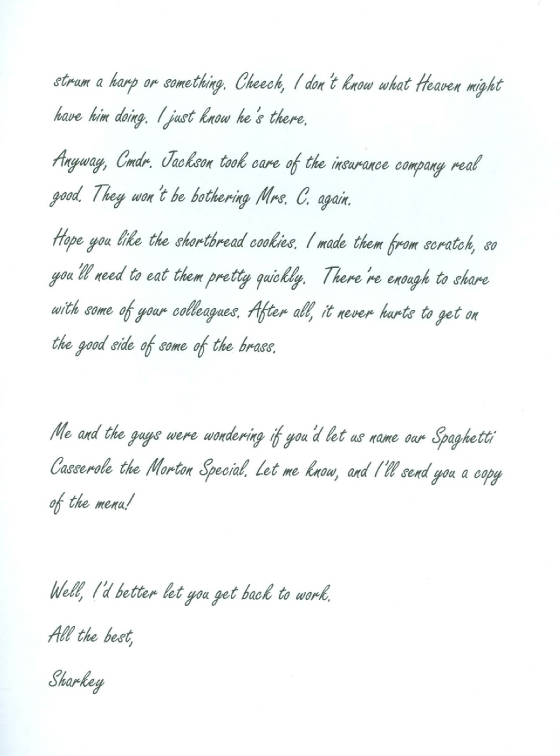 strum a harp or something. Cheech, I don't know what Heaven might
have him doing. I just know he's there.
Anyway, Cmdr. Jackson took care of the insurance company real
good. They won't be bothering Mrs. C. again.
Hope you like the shortbread cookies. I made them from scratch, so
you'll need to eat them pretty quickly.  There're enough to share
with some of your colleagues. After all, it never hurts to get on
the good side of some of the brass.
Me and the guys were wondering if you'd let us name our Spaghetti
Casserole the Morton Special. Let me know, and I'll send you a copy
of the menu!
Well, I'd better let you get back to work.
All the best,
Sharkey